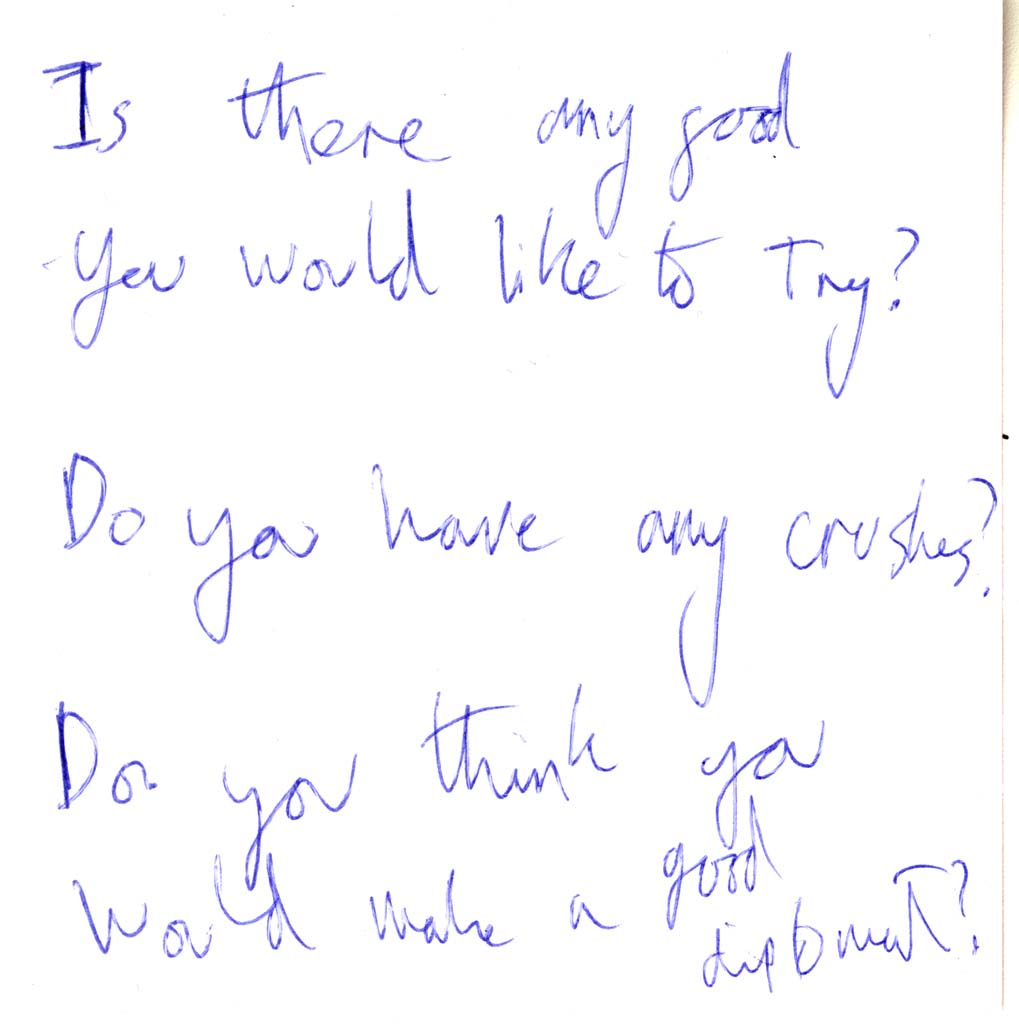 Is there any good
you would like to try?
Do you have any crushes?
Do you think you
would make a good
diplomat?